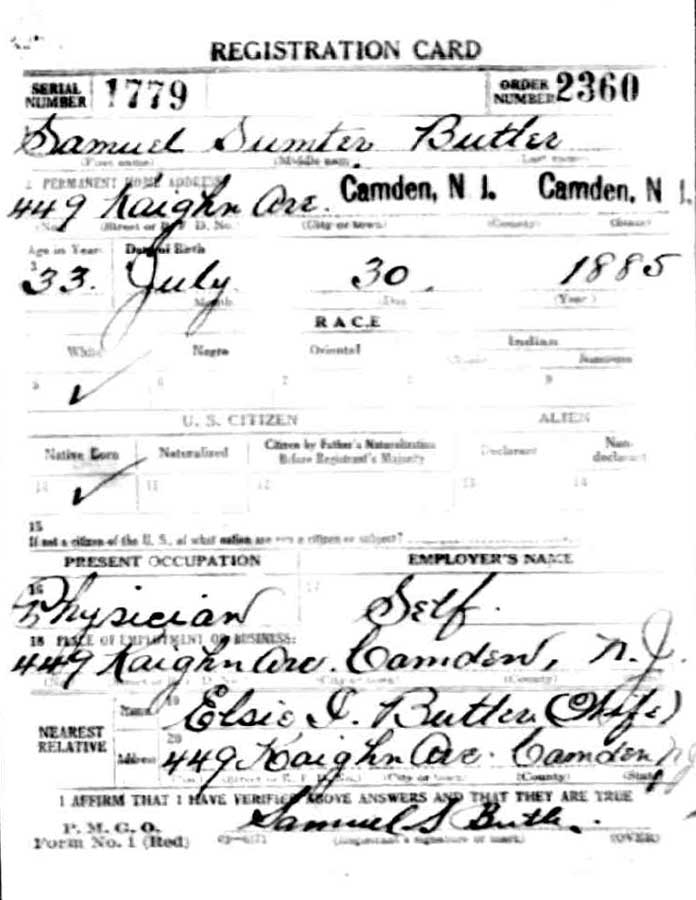 REGISTRATION CARD
SERIAL NUMBER 1779 ORDER NUMBER 2360
Samuel Sumter Butler
(First name) (Middle name) Last name
PERMANENT HOME ADDRESS
449 Kaighn Ave. Camden, N J. Camden, N J.
(No.) (Street or R. F. D. No.) (City or town) (County) (State)
Age in Years Date of Birth
33. July 30. 1885
Month (Day) (Year)
RACE
White Negro Oriental Indian
✓
U. S. CITIZEN ALIEN
Native Born Naturalized Citizen by Father's Naturalization Before Registrant's Majority Declarant Non-declarant
10 ✓ 11 12 13 14
15
If not a citizen of the U. S., of what nation are you a citizen or subject?
PRESENT OCCUPATION EMPLOYER'S NAME
16 17
Physician Self.
18 PLACE OF EMPLOYMENT OR BUSINESS:
449 Kaighn Ave. Camden, N. J.
(No.) (Street or R. F. D. No.) (City or town) (County) (State)
NEAREST RELATIVE Name 19 Elsie I. Butler (Wife)
Address 20 449 Kaighn Ave. Camden NJ
(Street or R. F. D. No.) (City or town) (County) (State)
I AFFIRM THAT I HAVE VERIFIED ABOVE ANSWERS AND THAT THEY ARE TRUE
P. M. G. O.
Form No. 1 (Red) Samuel S Butler.
(Registrant's signature or mark) (OVER)